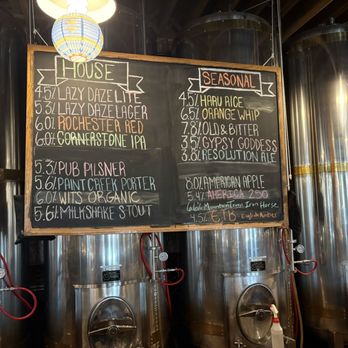 HOUSE
4.5% LAZY DAZE LITE
5.3% LAZY DAZE LAGER
6.0% ROCHESTER RED
6.0% CORNERSTONE IPA
5.3% PUB PILSNER
5.6% PAINT CREEK PORTER
6.0% WITS ORGANIC
5.6% MILKSHAKE STOUT
SEASONAL
4.5% HARU RICE
6.5% ORANGE WHIP
7.8% OLD & BITTER
3.5% GYPSY GODDESS
3.8% RESOLUTION ALE
8.0% AMERICAN APPLE
5.4% AMERICA 250
Iron Horse
4.5% E.T.B English Amber